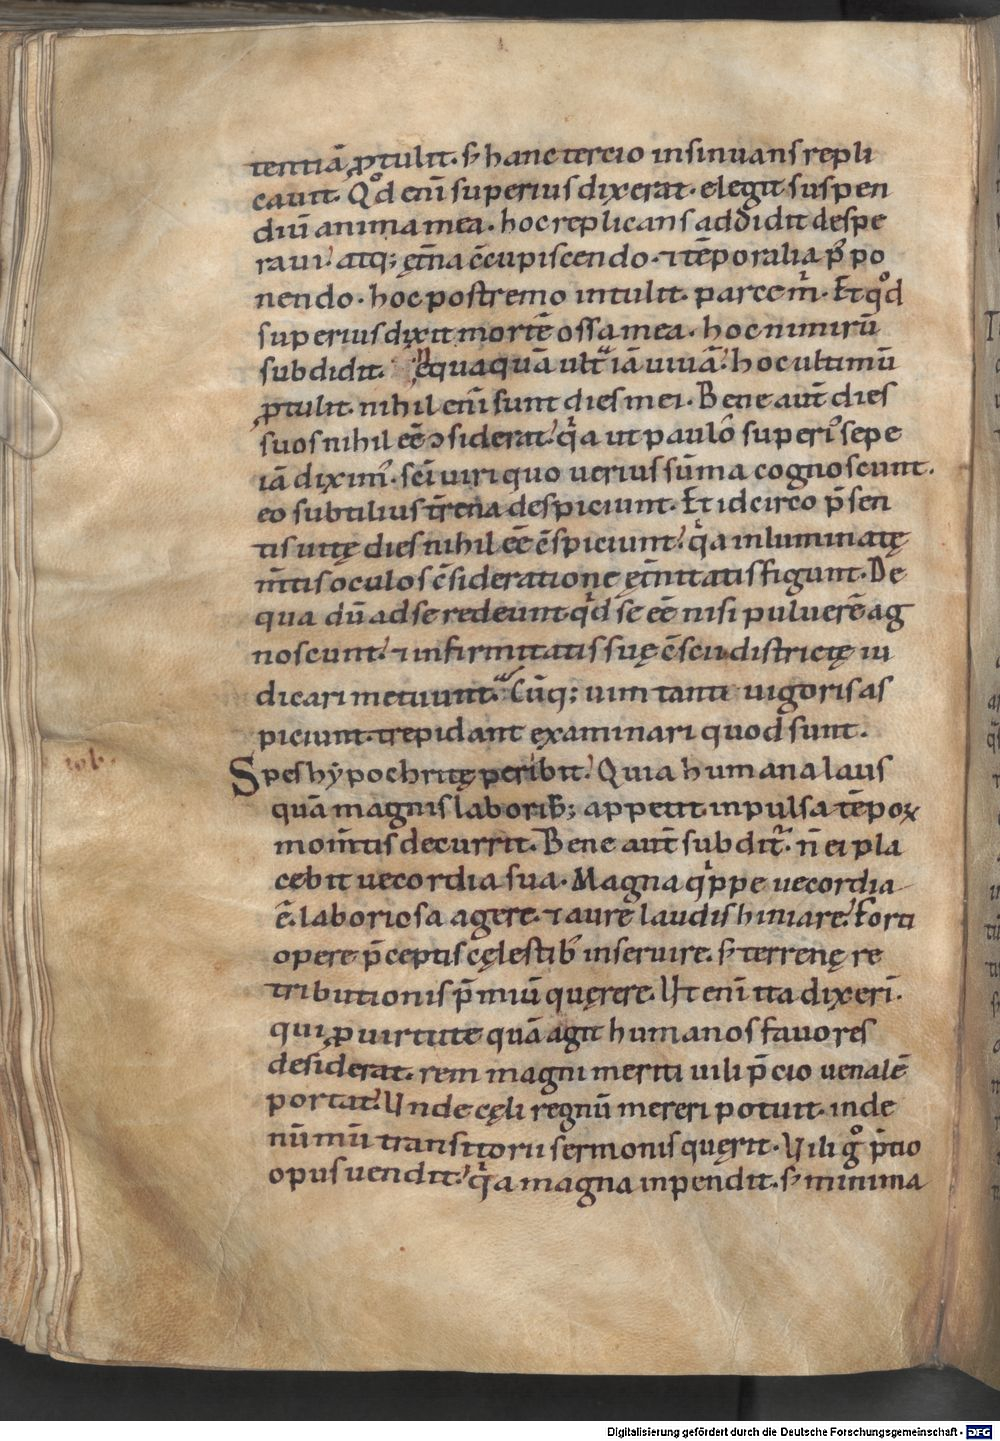 tentiā ꝓtulit. sꝫ hanc tercio insinuans repli
cauit. Qͦd eni̅ superius dixerat. elegit suspen
diū anima mea. hoc replicans addidit despe
raui. atq; ęt̅na c̅cupiscendo. ⁊ tēporalia p̾po
nendo. hoc postremo intulit. parce m̍. Et qͦd
superius dixit mortē ossa mea. hoc nimirū
subdidit. nequaquā ult̅ iā uiuā. hoc ultimū
ꝓtulit. nihil eni̅ sunt dies mei. Bene aut̅ dies
suos nihil ee̅ ↄsiderat. q̍a ut paulo superi᾽ sepe
iā dixim᾽. sc̅i uiri quo uerius sūma cognoscunt.
eo subtilius t̅rena despiciunt. Et idcirco p̅sen
tis uitę dies nihil ee̅ c̅spiciunt. q̍a inluminatę
m̅tis oculos c̅sideratione ęt̅nitatis figunt. De
qua dū ad se redeunt qͥd se ee̅ nisi puluerē ag
noscunt. ⁊ infirmitatis suę c̅scii districtę iu
dicari metuunt. Cūq; uim tanti uigoris as
piciunt. trepidant examinari quod sunt.
iob.
Spes hẏpochritę peribit. Quia humana laus
quā magnis laborib; appetit. inpulsa tēpoꝝ
mom̅tis decurrit. Bene aut̅ subdit᷑. n̅ ei pla
cebit uecordia sua. Magna q̍ppe uecordia
ē. laboriosa agere. ⁊ aure laudis hiniare. Forti
opere p̅ceptis cęlestib᾽ inseruire. sꝫ terrenę re
tributionis p̅miū quęrere. Ut eni̅ ita dixeri̅.
qui ꝓ uirtute quā agit humanos fauores
desiderat. rem magni meriti uili p̅cio uenalē
portat. Unde cęli regnū mereri potuit. inde
nūmū transitorii sermonis quęrit. Uili gͦ p̅tio
opus uendit. q̍a magna inpendit. sꝫ minima
Digitalisierung gefördert durch die Deutsche Forschungsgemeinschaft - DFG